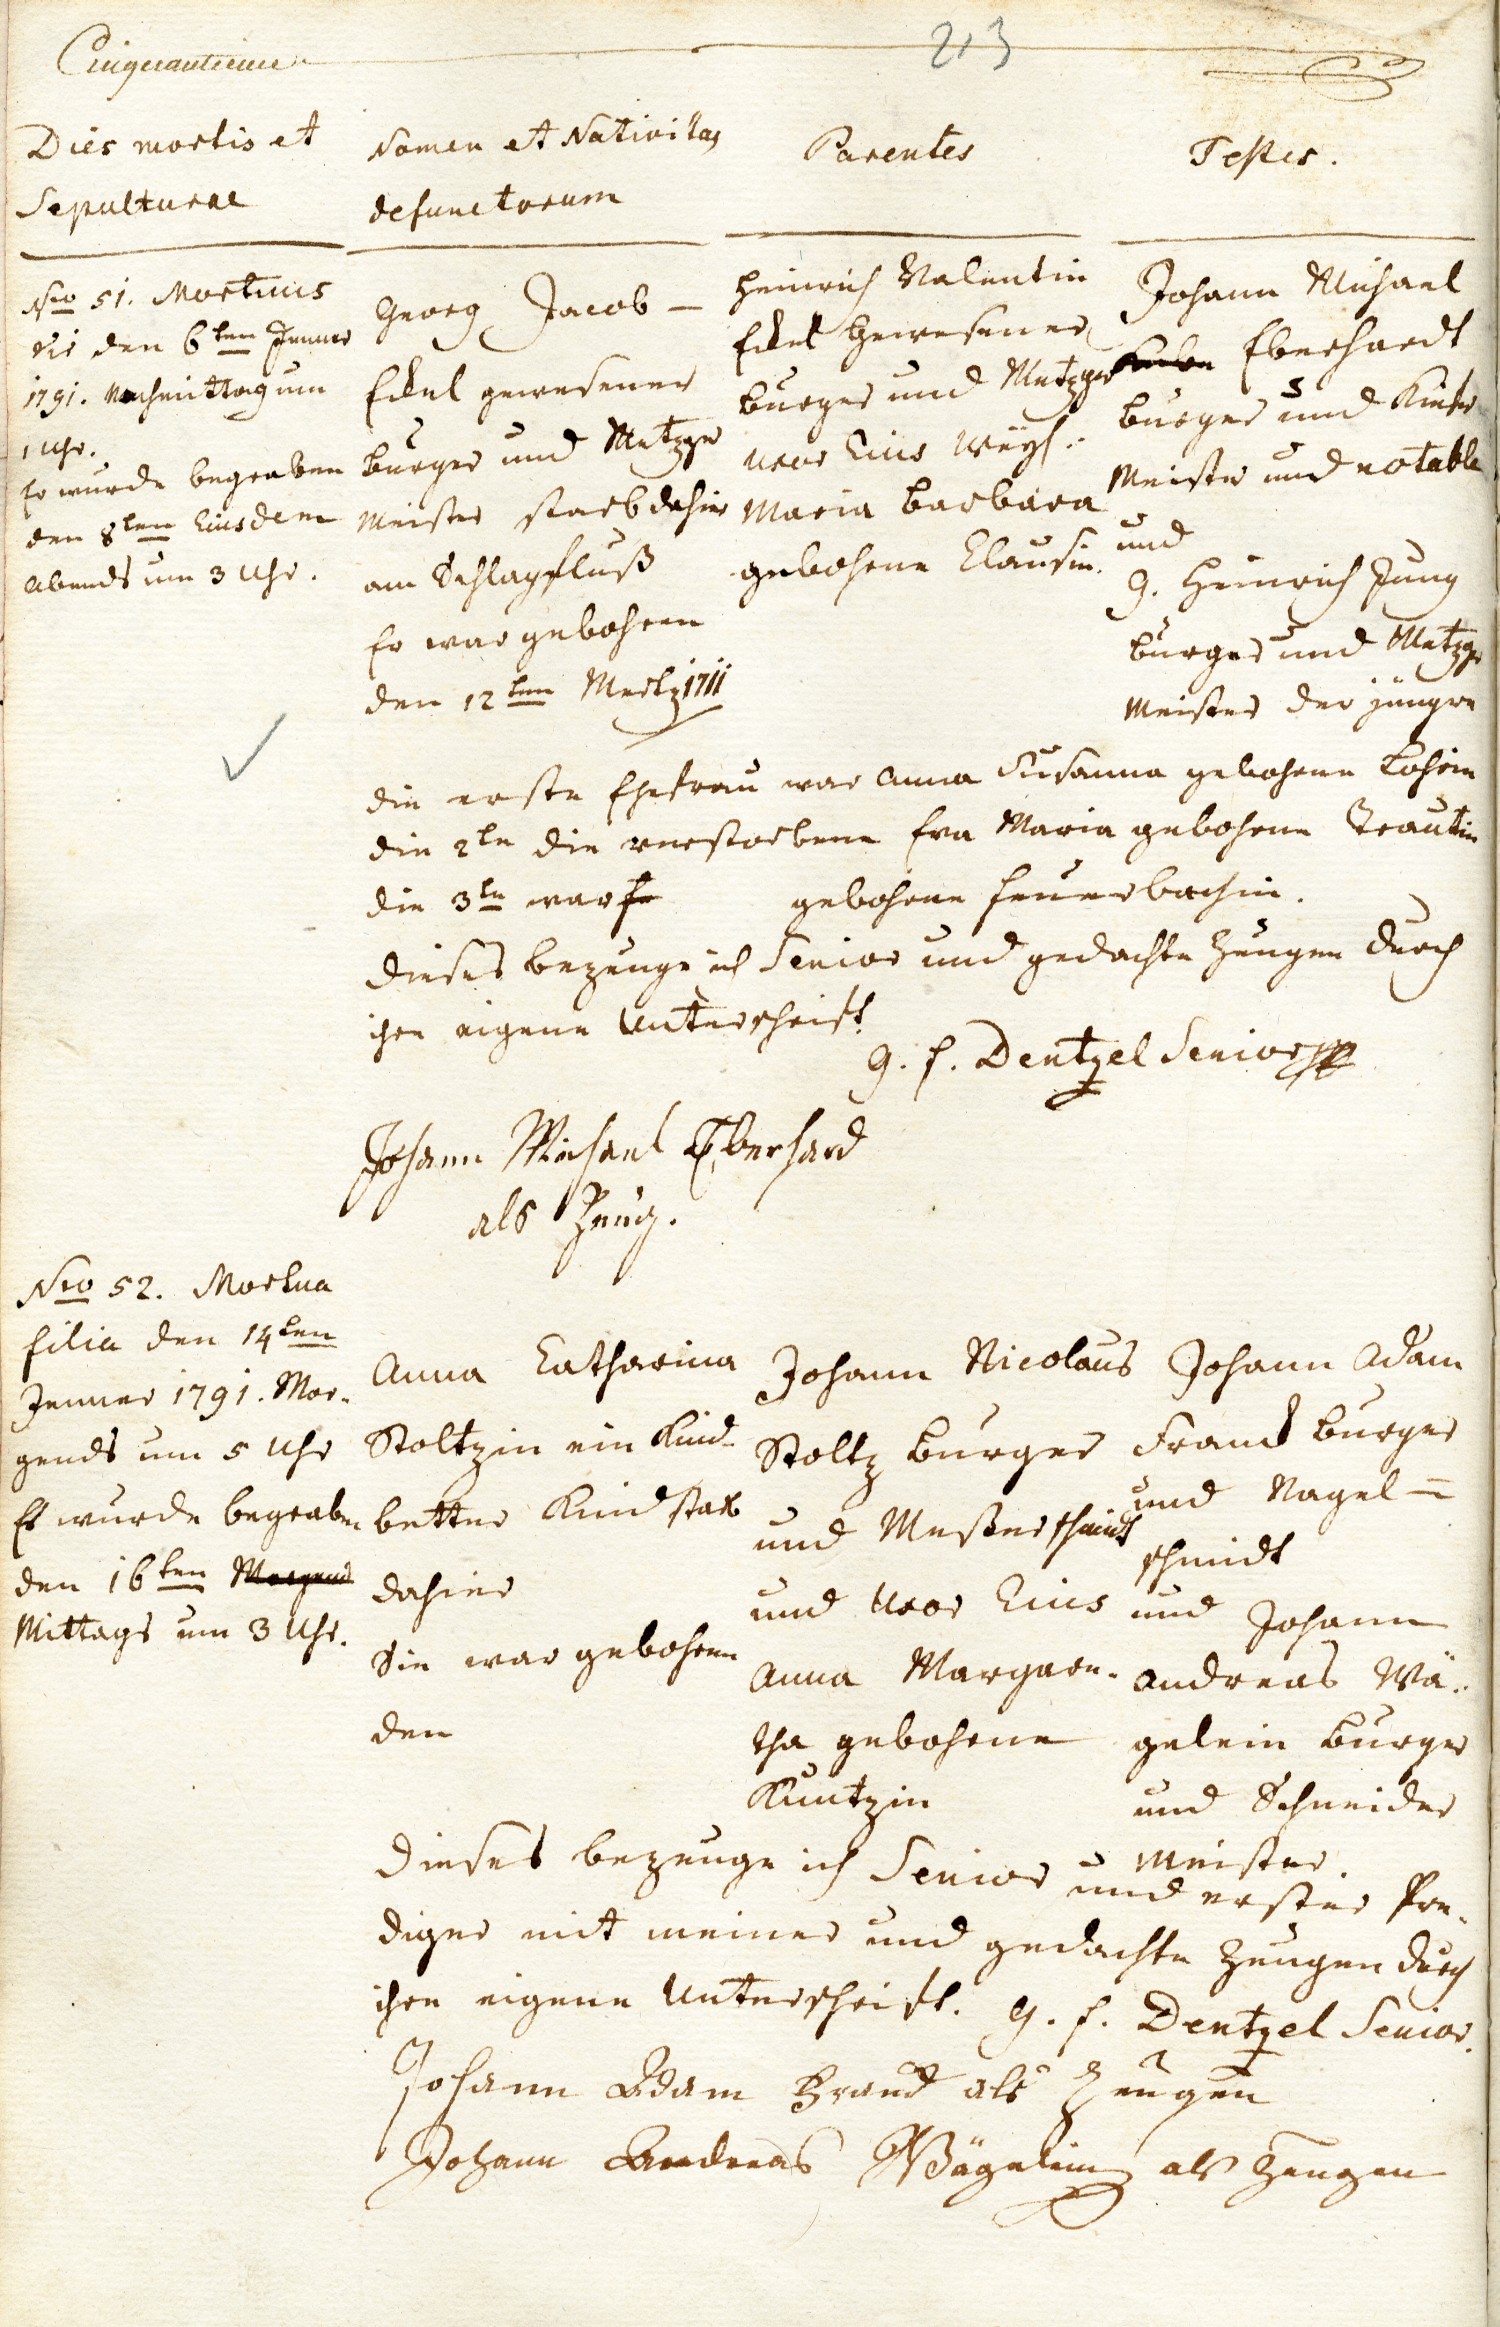 Cinquantieme
213
Dies mortis et
Sepulturae
Nomen et Nativitas
defunctorum
Parentes
Testes.
Nro 51. Mortuus
den 6ten Jenner
1791. Nachmittag um
1 Uhr.
Er wurde begraben
den 8ten Eiusdem
abends um 3 Uhr.
Georg Jacob
Eckel gewesener
burger und Metzger
Meister starb dahier
am Schlagfluß
Er war gebohren
den 12ten Mertz 1711
Heinrich Valentin
Eckel gewesener
burger und Metzger
uxor Eius
Maria Barbara
gebohrne Clausin.
Johann Michael
Eberhardt
burger und Kiefer
Meister und notable
und
G. Heinrich Jung
burger und Metzger
Meister der jüngre
die erste Ehefrau war Anna Susanna gebohrne
die 2te die verstorbene Eva Maria gebohrne Trautin
die 3te war gebohrne Feuerbachin.
dieses bezeuge ich Senior und gedachte Zeugen durch
ihre eigene Unterschrift.
G. F. Dentzel Senior
Johann Michael Eberhard
als Zeug.
Nro 52. Mortua
filia den 14ten
Jenner 1791. Mor-
gends um 5 Uhr
Es wurde begraben
den 16ten Morgend
Mittags um 3 Uhr.
Anna Catharina
Stoltzin ein Kind-
better Kind starb
dahier
Sie war gebohren
den
Johann Nicolaus
Stoltz burger
und Meßerschmidt
und Uxor Eius
Anna Margare-
tha gebohrne
Kuntzin
Johann Adam
burger
und Nagel=
schmidt
und Johann
Andreas Wä-
gelein burger
und Schneider
Meister.
dieses bezeuge ich Senior und erster Pre-
diger mit meiner und gedachte Zeugen durch
ihre eigene Unterschrift. G. F. Dentzel Senior.
Johann Adam Brand als Zeugen
Johann Andreas Wägelein als Zeugen